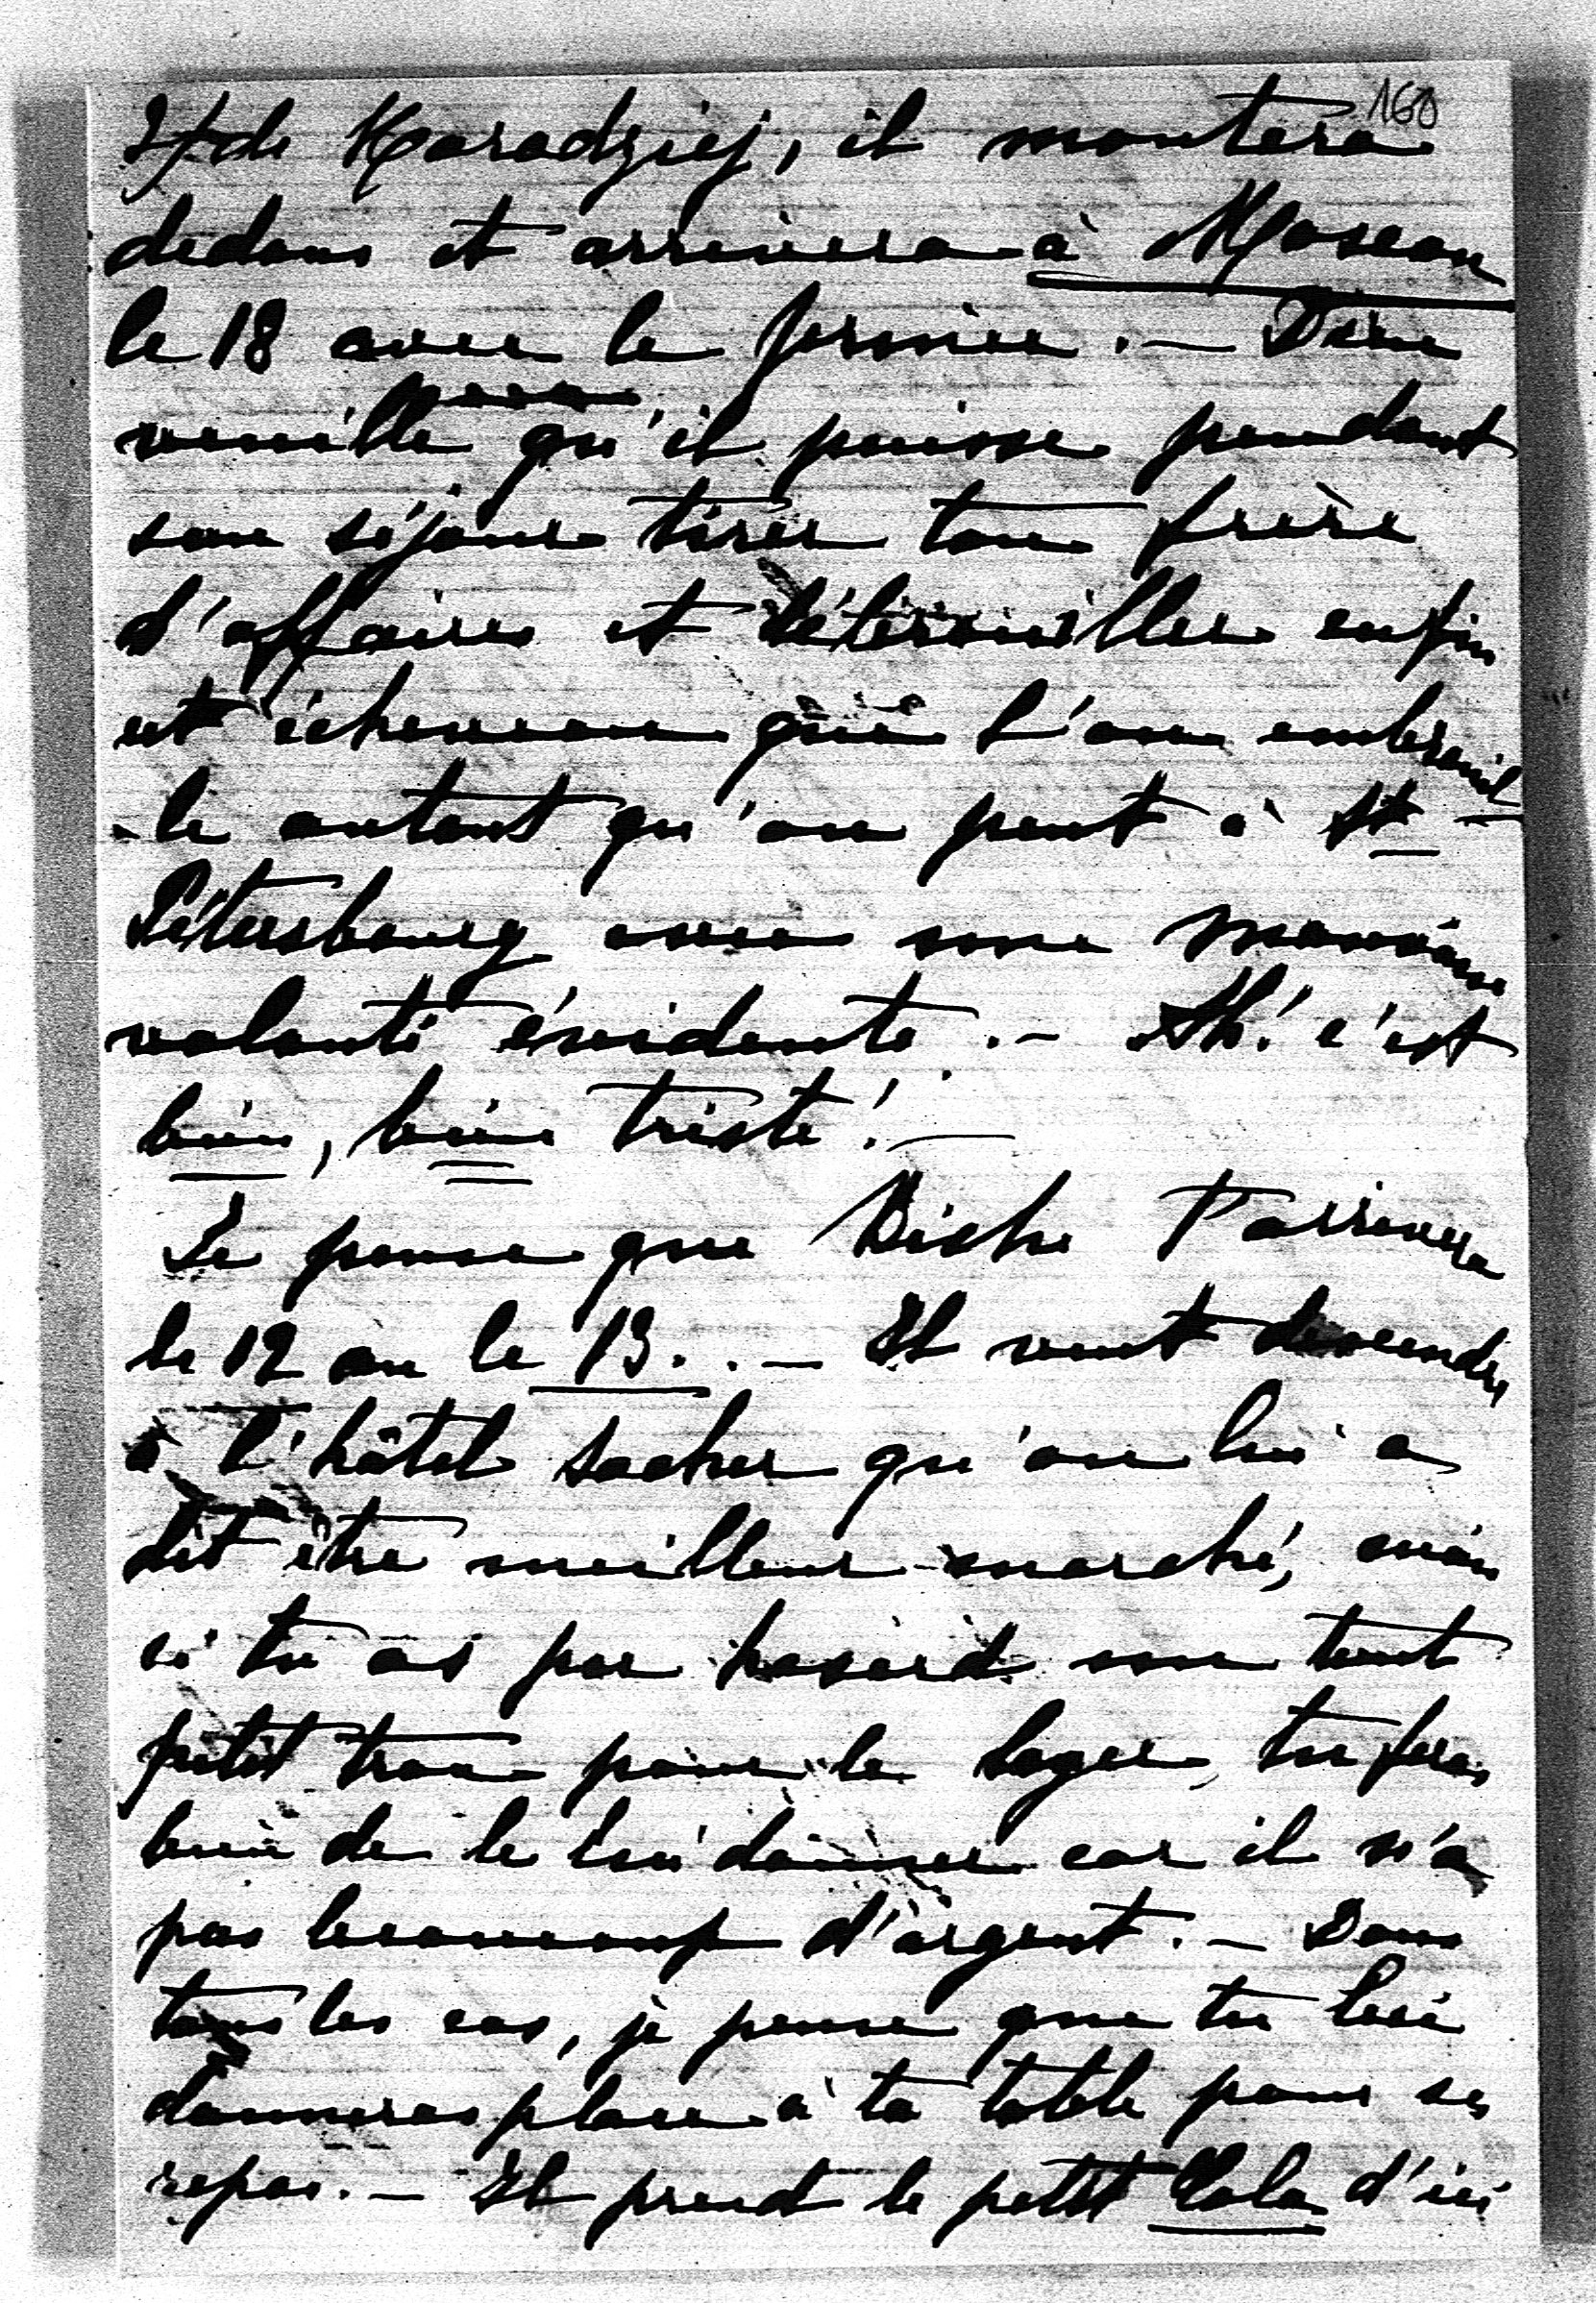 160
de Karadziej, il montera
dedans et arrivera à Moscou
le 18 avec le premier. — Dieu
veuille qu'il puisse pendant
son séjour tirer ton frère
d'affaires et détirailler enfin
cet écheveau que l'on embrouil-
-le autant qu'on peut à St-
Pétersbourg avec une mauvaise
volonté évidente. — Ah! c'est
bien, bien triste! —
Je pense que Bishe t'arrivera
le 12 ou le 13. . — Il veut descendre
à l'hôtel Sacher qu'on lui a
dit être meilleur marché, mais
si tu as par hasard un tout
petit trou pour le loger, tu feras
bien de le lui donner car il n'a
pas beaucoup d'argent. — Dans
tous les cas, je pense que tu lui
donneras place à ta table pour ses
repas. — Il prend le petit Lola d'ici